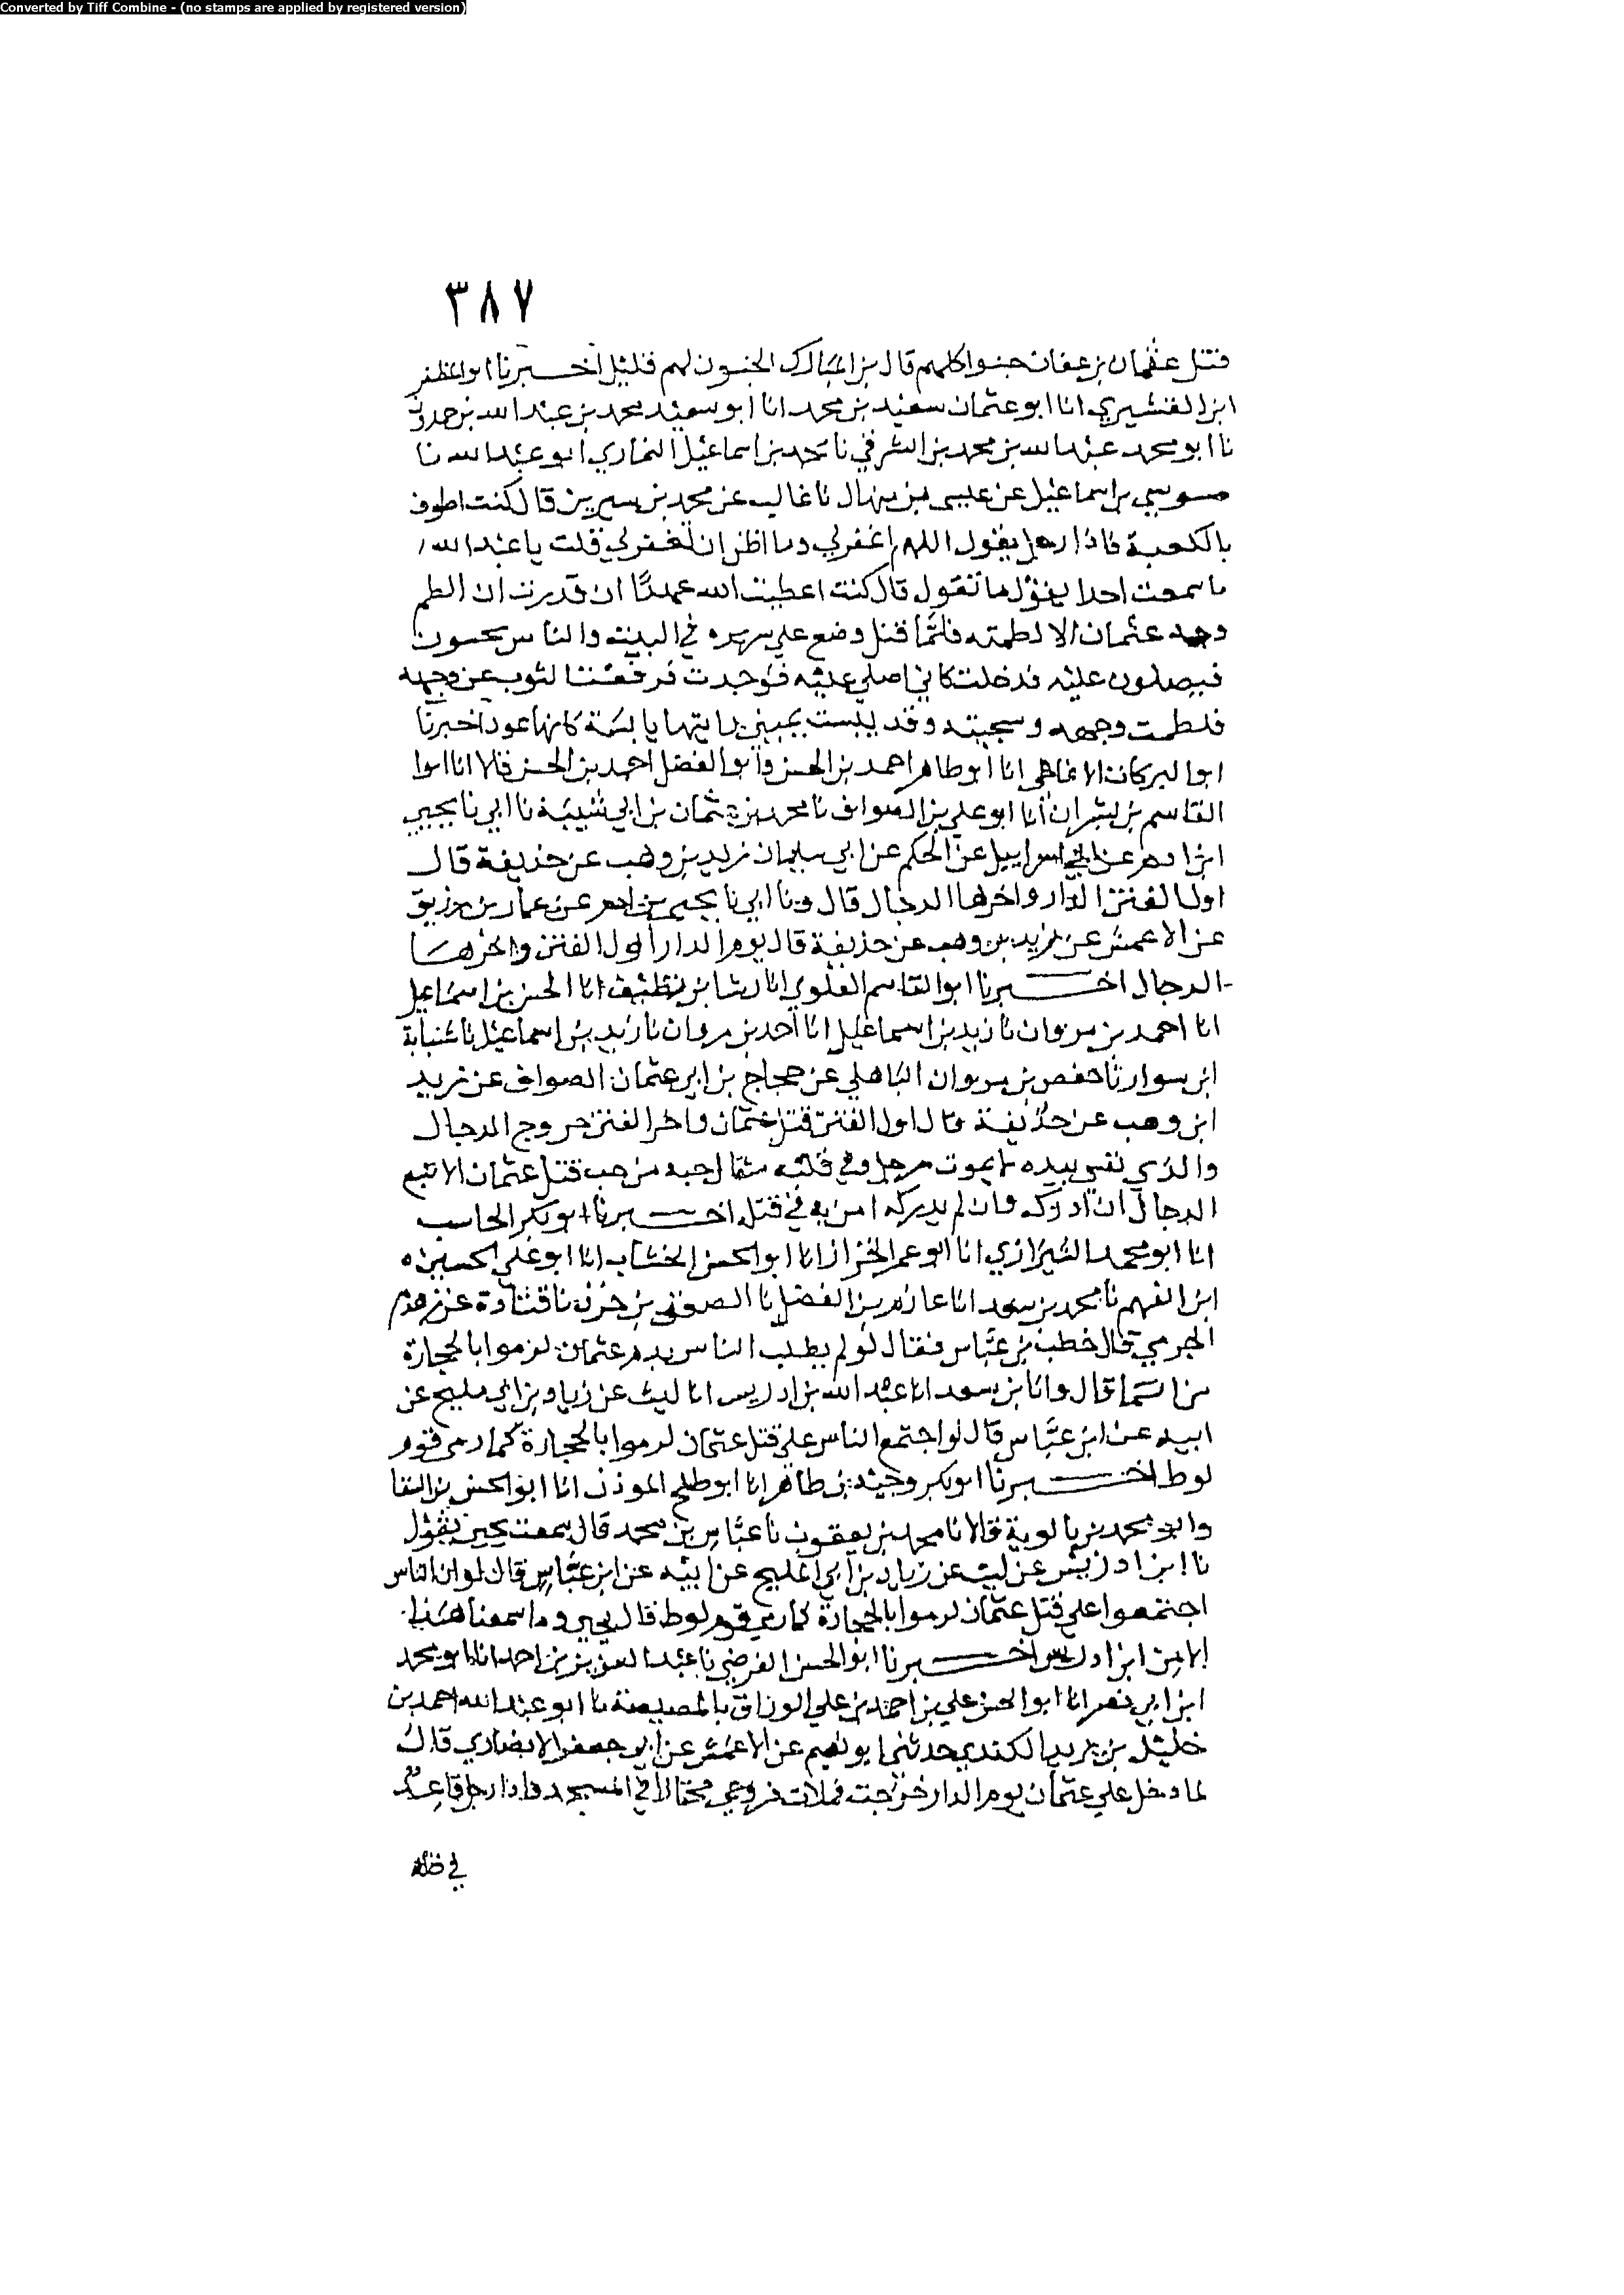 Converted by Tiff Combine - (no stamps are applied by registered version)
٣٨٧
قتل عثمان بن عفان جنوا كلهم قال بن المبارك الجنون لهم قليل اخبرنا ابو المظفر
ابن القشيري انا ابو عثمان سعيد بن محمد انا ابو سعيد محمد بن عبد الله بن حمدون
نا ابو محمد عبد الله بن محمد بن الشرقي نا محمد بن اسماعيل البخاري ابو عبد الله نا
موسى بن اسماعيل عن عيسى بن منهال نا غالب عن محمد بن سيرين قال كنت اطوف
بالكعبة فاذا رجل يقول اللهم اغفر لي وما اظن ان تغفر لي قلت يا عبد الله
ما سمعت احدا يقول ما تقول قال كنت اعطيت الله عهدا ان قدرت ان الطم
وجه عثمان الا لطمته فلما قتل وضع على سريره في البيت والناس يجيئون
فيصلون عليه فدخلت كاني اصلي عليه فوجدت فرفعت الثوب عن وجهه
فلطمت وجهه وسجيته وقد يبست يميني رايتها يابسة كانها عود اخبرنا
ابو البركات الانماطي انا ابو طاهر احمد بن الحسن وابو الفضل احمد بن الحسن قالا انا ابوا
القاسم بن بشران انا ابو علي بن الصواف نا محمد بن عثمان بن ابي شيبة نا ابي نا يحيى
ابن ادم عن ابي اسرايل عن الحكم عن ابي سليمان زيد بن وهب عن حذيفة قال
اول الفتن الدار واخرها الدجال قال ونا ابي نا يحيى بن ادم عن عمار بن رزيق
عن الاعمش عن زيد بن وهب عن حذيفة قال يوم الدار اول الفتن واخرها
الدجال اخبرنا ابو القاسم العلوي انا رشا بن نظيف انا الحسن بن اسماعيل
انا احمد بن مروان نا زيد بن اسماعيل انا احمد بن مروان نا زيد بن اسماعيل نا شبابة
ابن سوار نا حفص بن مروان الباهلي عن حجاج بن ابي عثمان الصواف عن زيد
ابن وهب عن حذيفة قال اول الفتن قتل عثمان واخر الفتن خروج الدجال
والذي نفسي بيده لا يموت رجل وفي قلبه مثقال حبه من حب قتل عثمان الا تبع
الدجال ان ادركه وان لم يدركه امن به في قبره اخبرنا ابو بكر الحاسب
انا ابو محمد الشيرازي انا ابو عمر الخزاز انا ابو الحسن الخشاب انا ابو علي الحسين
ابن الفهم نا محمد بن سعد انا عارم بن الفضل نا الصعق بن حزن نا قتادة عن زهدم
الجرمي قال خطب بن عباس فقال لو لم يطلب الناس بدم عثمان لرموا بالحجارة
من السما قال وانا بن سعد انا عبد الله بن ادريس انا ليث عن زياد بن ابي مليح عن
ابيه عن ابن عباس قال لو اجتمع الناس على قتل عثمان لرموا بالحجارة كما رمي قوم
لوط اخبرنا ابو بكر وجيه بن طاهر انا ابو صالح الموذن انا ابو الحسن بن السقا
وابو محمد بن بالوية قالا نا محمد بن يعقوب نا عباس بن محمد قال سمعت يحيى يقول
نا ابن ادريس عن ليث عن زياد بن ابي المليح عن ابيه عن ابن عباس قال لو ان الناس
اجتمعوا على قتل عثمان لرموا بالحجارة كما رمي قوم لوط قال يحيى وما سمعنا هذا
الا من ابن ادريس اخبرنا ابو الحسن الفرضي نا عبد العزيز بن احمد انا ابو محمد
ابن ابي نصر انا ابو الحسن علي بن احمد بن علي الوراق بالمصيصة نا ابو عبد الله احمد بن
خليل بن يزيد الكندي حدثني ابو نعيم عن الاعمش عن ابي جعفر الانصاري قال
لما دخل على عثمان يوم الدار خرجت فملات فروجي مختالا في المسجد فاذا رجل قاعد
في ظلة